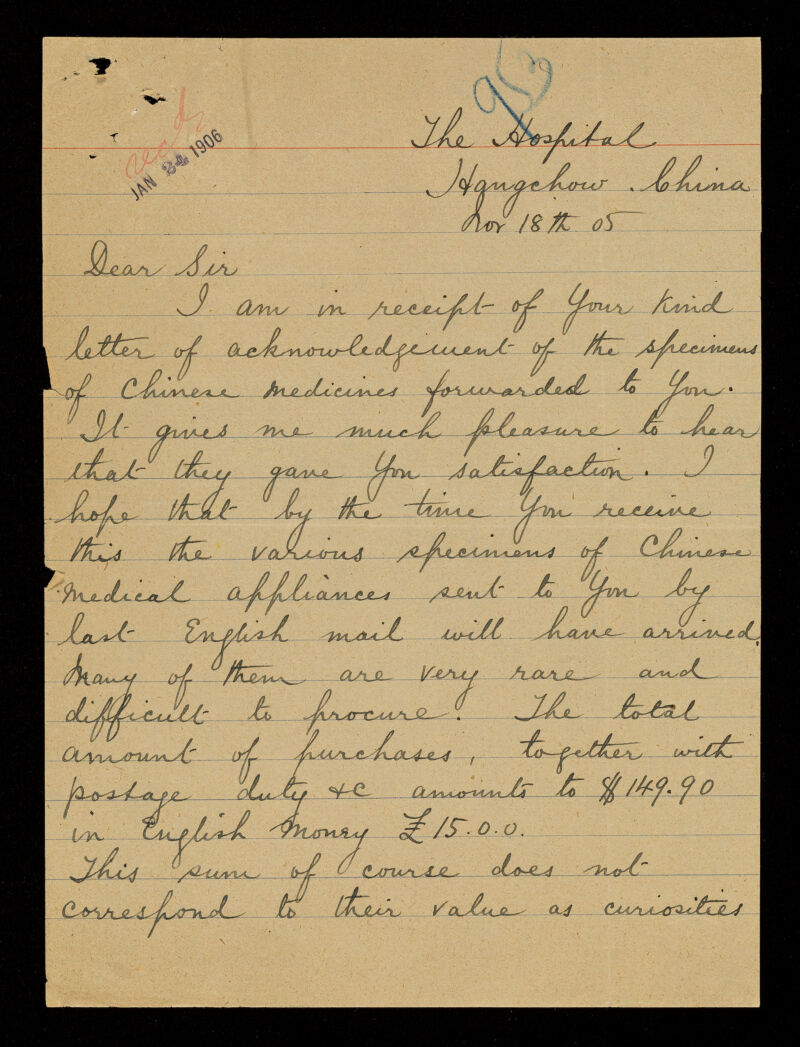 953
recd
JAN 24 1906
The Hospital
Hangchow. China
Nov 18th 05
Dear Sir
I am in receipt of Your Kind
letter of acknowledgement of the specimens
of Chinese Medicines forwarded to You.
It gives me much pleasure to hear
that they gave You satisfaction. I
hope that by the time You receive
this the various specimens of Chinese
Medical appliances sent to You by
last English mail will have arrived.
Many of them are very rare and
difficult to procure. The total
amount of purchases, together with
postage duty &c amounts to $149.90
in English Money £15.0.0.
This sum of course does not
correspond to their value as curiosities